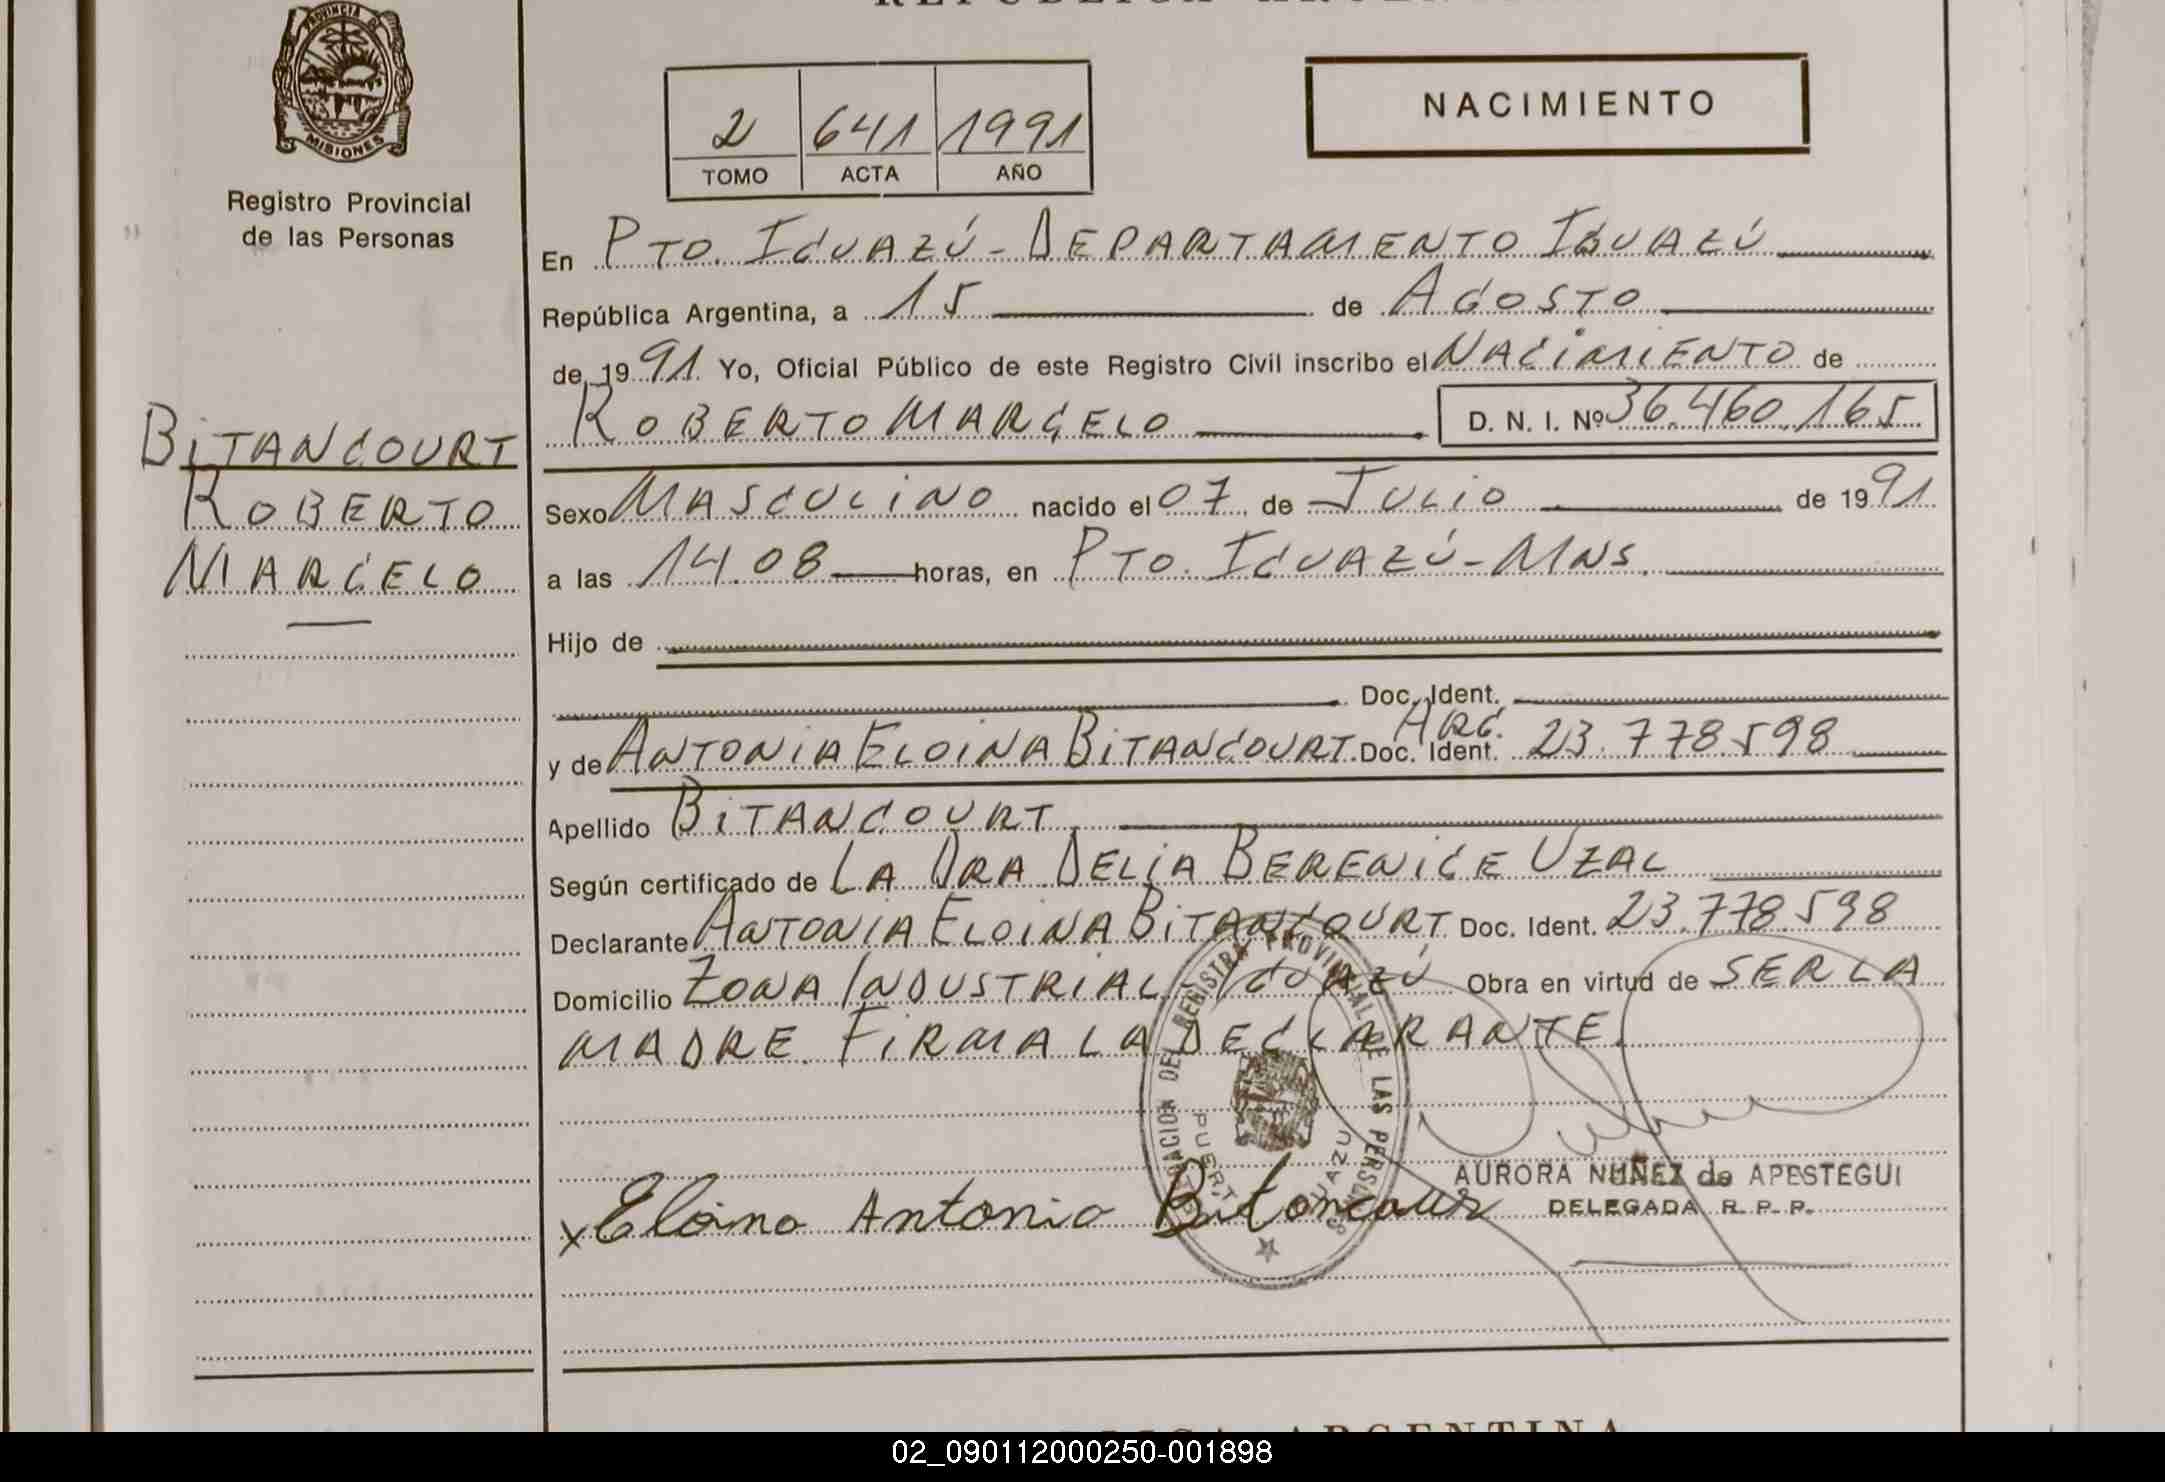 REPÚBLICA ARGENTINA
PROVINCIA DE
MISIONES
Registro Provincial
de las Personas
2 641 1991
TOMO ACTA AÑO
NACIMIENTO
En PTO. IGUAZÚ - DEPARTAMENTO IGUAZÚ
República Argentina, a 15 de AGOSTO
de 1991 Yo, Oficial Público de este Registro Civil inscribo el NACIMIENTO de
ROBERTO MARCELO D. N. I. Nº 36.460.165
BITANCOURT
ROBERTO
MARCELO
Sexo MASCULINO nacido el 07 de JULIO de 1991
a las 14.08 horas, en PTO. IGUAZÚ - MNS.
Hijo de
Doc. Ident.
y de ANTONIA ELOINA BITANCOURT Doc. Ident. ARG. 23.778.598
Apellido BITANCOURT
Según certificado de LA DRA DELIA BERENICE UZAL
Declarante ANTONIA ELOINA BITANCOURT Doc. Ident. 23.778.598
Domicilio ZONA INDUSTRIAL - IGUAZÚ Obra en virtud de SER LA
MADRE. FIRMA LA DECLARANTE.
DEL REGISTRO PROVINCIAL DE LAS PERSONAS
PUERTO IGUAZU
AURORA NUÑEZ de APESTEGUI
DELEGADA R. P. P.
x Eloina Antonia Bitancour
ARGENTINA
02_090112000250-001898